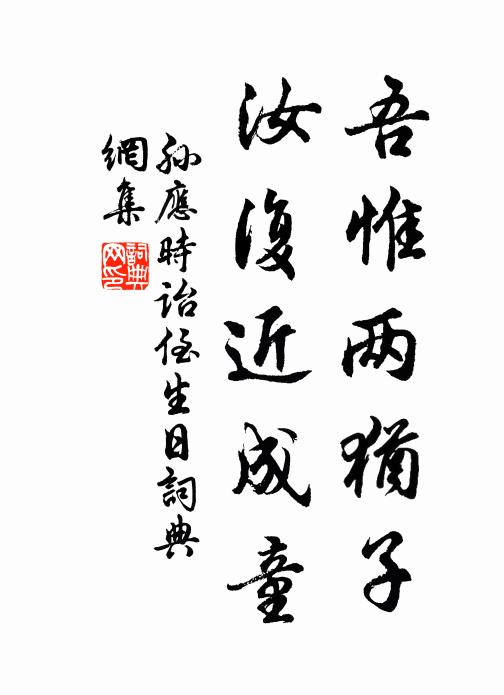 吾惟两猶子
汝復近成童
孙應時詒侄生日詞典
網集
詞典网印